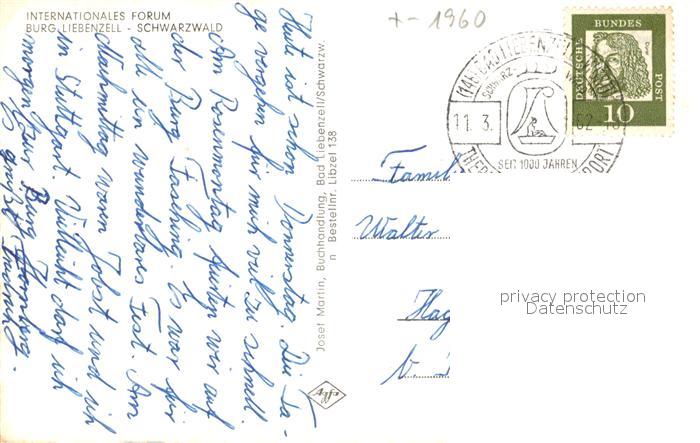 INTERNATIONALES FORUM
BURG LIEBENZELL - SCHWARZWALD
+- 1960
Heut ist schon Donnerstag. Die Ta-
ge vergehen für mich viel zu schnell.
Am Rosenmontag feierten wir auf
der Burg Fasching. Es war für
alle ein wunderbares Fest. Am
Nachmittag waren Jobst und ich
in Stuttgart. Vielleicht darf ich
morgen zur Burg
Es grüßt
Josef Martin, Buchhandlung, Bad Liebenzell/Schwarzw.
n Bestellnr. Libzel 138
Agfa
DEUTSCHE
BUNDES
POST
10
11. 3.
62
SEIT 1000 JAHREN
Famil
Walter
Hag
privacy protection
Datenschutz